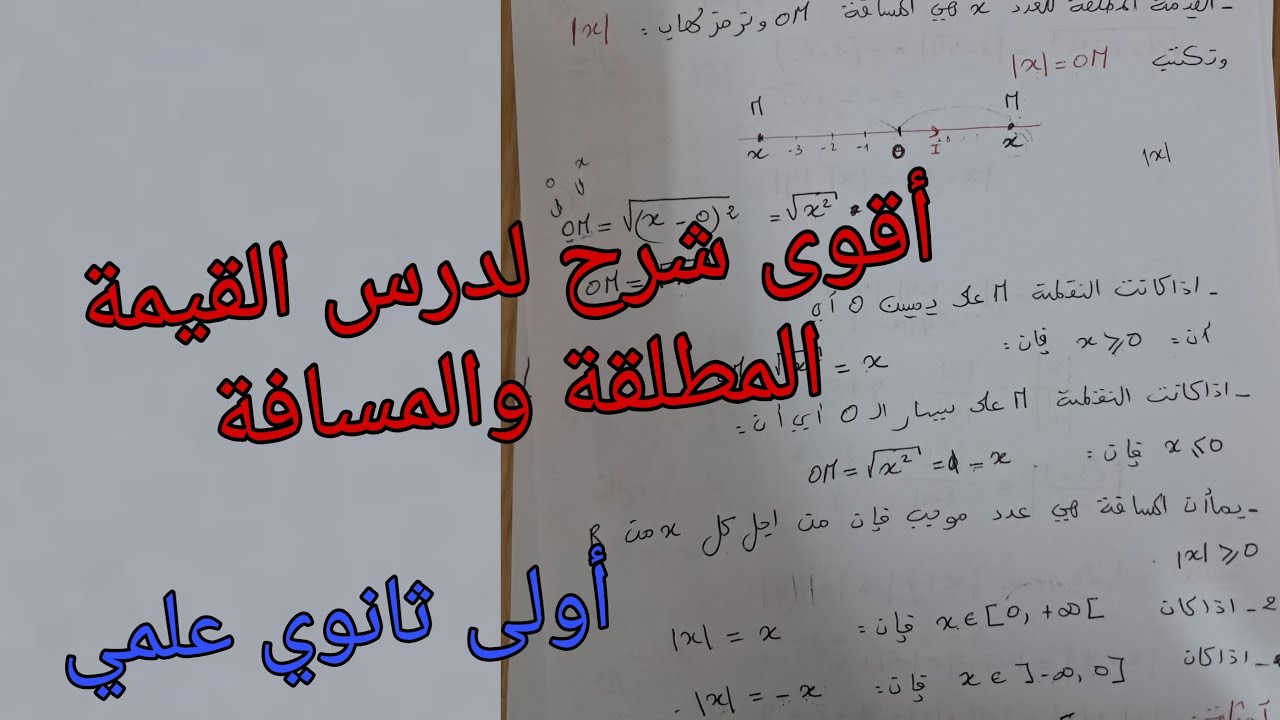 - القيمة المطلقة للعدد x هي المسافة OM ونرمز لها ب: |x|
وتكتب |x| = OM
M M
x -3 -2 -1 0 I x
|x|
0 x
OM = √(x - 0)² = √x²
OM =
- اذا كانت النقطة M على يمين O أي
أن: x ⩾ 0 فإن:
√x² = x
- اذا كانت النقطة M على يسار الـ O أي أن:
x ⩽ 0 فإن: OM = √x² = - x
- بما أن المسافة هي عدد موجب فإن من اجل كل x من R
|x| ⩾ 0
2 - اذا كان x ∈ [0, +∞[ فإن: |x| = x
- اذا كان x ∈ ]-∞, 0] فإن: |x| = - x .
أقوى شرح لدرس القيمة
المطلقة والمسافة
أولى ثانوي علمي